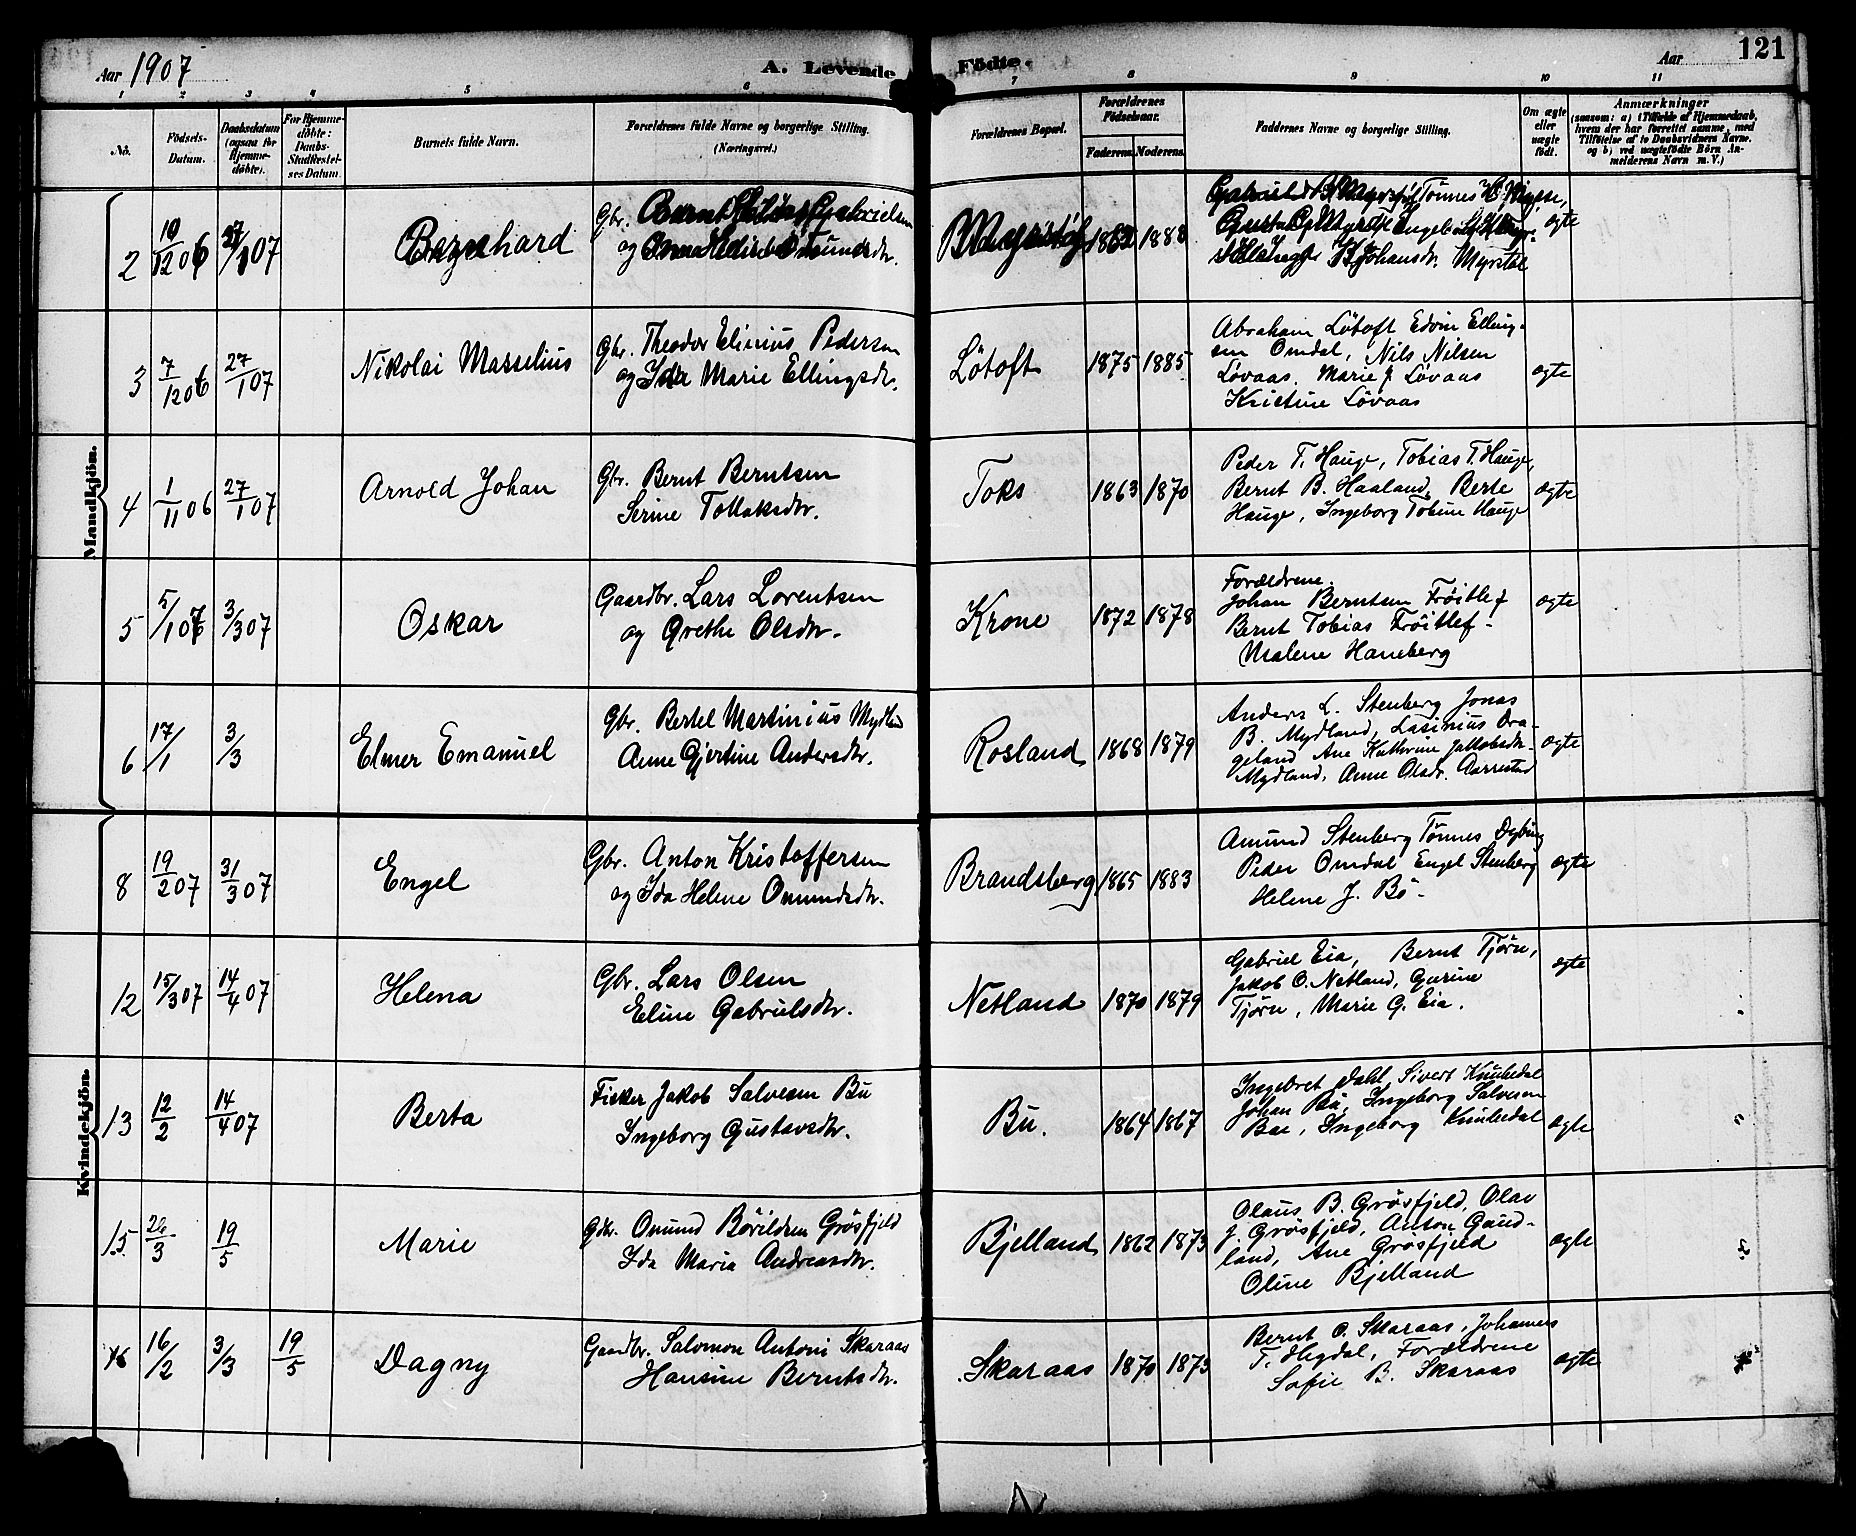 Aar 1907
A. Levende
Fødte.
Aar
121
1 2 3 4 5 6 7 8 9 10 11
No.
Fødsels-
Datum.
Daabsdatum
(ogsaa for
Hjemme-
døbte).
For Hjemme-
døbte:
Daabs-
Stadfæstel-
ses Datum.
Barnets fulde Navn.
Forældrenes fulde Navne og borgerlige Stilling.
(Næringsvei.)
Forældrenes Bopæl.
Forældrenes
Fødselsaar.
Faderens.
Moderens.
Faddernes Navne og borgerlige Stilling.
Om ægte
eller
uægte
født.
Anmærkninger
(saasom: a) i Tilfælde af Hjemmedaab,
hvem der har forrettet samme, med
Tilføielse af to Daabsvidners Navne,
og b) ved uægtefødte Børn An-
melderens Navn m. V.)
Mandkjøn.
2
10/12 06
27/1 07
Bernhard
Gbr. Bernt Gabrielsen
og
1888
ægte
Tønnes
Johansdr. Myrstøl
3
7/12 06
27/1 07
Nikolai Masselius
Gbr. Theodor Elinius Pedersen
og Ida Marie Ellingsdtr.
Løtoft
1875
1885
Abraham Løtoft Edvin Elling-
sen Omdal, Nils Nilsen
Løvaas. Marie J. Løvaas
Kristine Løvaas
ægte
4
1/11 06
27/1 07
Arnold Johan
Gbr. Bernt Berntsen
Serine Tollaksdtr.
Toks
1863
1870
Peder T. Hauge, Tobias T. Hauge,
Bernt B. Haaland, Berte
Hauge, Ingeborg Tobine Hauge
ægte
5
5/1 07
3/3 07
Oskar
Gaardbr. Lars Lorentsen
og Grethe Olsdtr.
Krone
1872
1878
Forældrene.
Johan Berntsen Frøitlef
Bernt Tobias Frøitlef-
Malene Haneberg
ægte
6
17/1
3/3
Elmer Emanuel
Gbr. Bertel Martinius Mydland
Anne Gjertine Andersdtr.
Rosland
1868
1879
Anders L. Stenberg Jonas
B. Mydland, Lasinius Dra-
geland Ane Kathrine Jakobsdtr-
Mydland, Anne Olsdr. Aarrestad
ægte
Kvindekjøn.
8
19/2 07
31/3 07
Engel
Gbr. Anton Kristoffersen
og Ida Helene Omundsdtr.
Brandsberg
1865
1883
Amund Stenberg Tønnes Dybing
Peder Omdal Engel Stenberg
Helene J. Bø-
ægte
12
15/3 07
14/4 07
Helena
Gbr. Lars Olsen
Eline Gabrielsdtr.
Netland
1870
1879
Gabriel Eia, Bernt Tjørn,
Jakob O. Netland, Gurine
Tjørn, Marie G. Eia.
ægte
13
12/2
14/4 07
Berta
Fisker Jakob Salvesen Bu
Ingeborg Gustavsdtr.
Bu.
1864
1867
Ingebret Dahl, Sivert Knubedal
Johan Bu, Ingeborg Salvesen
Bae, Ingeborg Knubedal
ægte
15
26/3
19/5
Marie
Gdbr. Omund Børildsen Grøsfjeld
Ida Maria Andreasdtr.
Bjelland
1862
1873
Olaus B. Grøsfjeld, Olav
J. Grøsfjeld, Anton Gaud-
land, Ane Grøsfjeld
Oline Bjelland
ægte
16
16/2
3/3
19/5
Dagny
Gaardbr. Salomon Antoni Skaraas
Hansine Berntsdtr.
Skaraas
1870
1873
Bernt O. Skaraas, Johannes
T. Hegdal, Forældrene
Sofie B. Skaraas
ægte